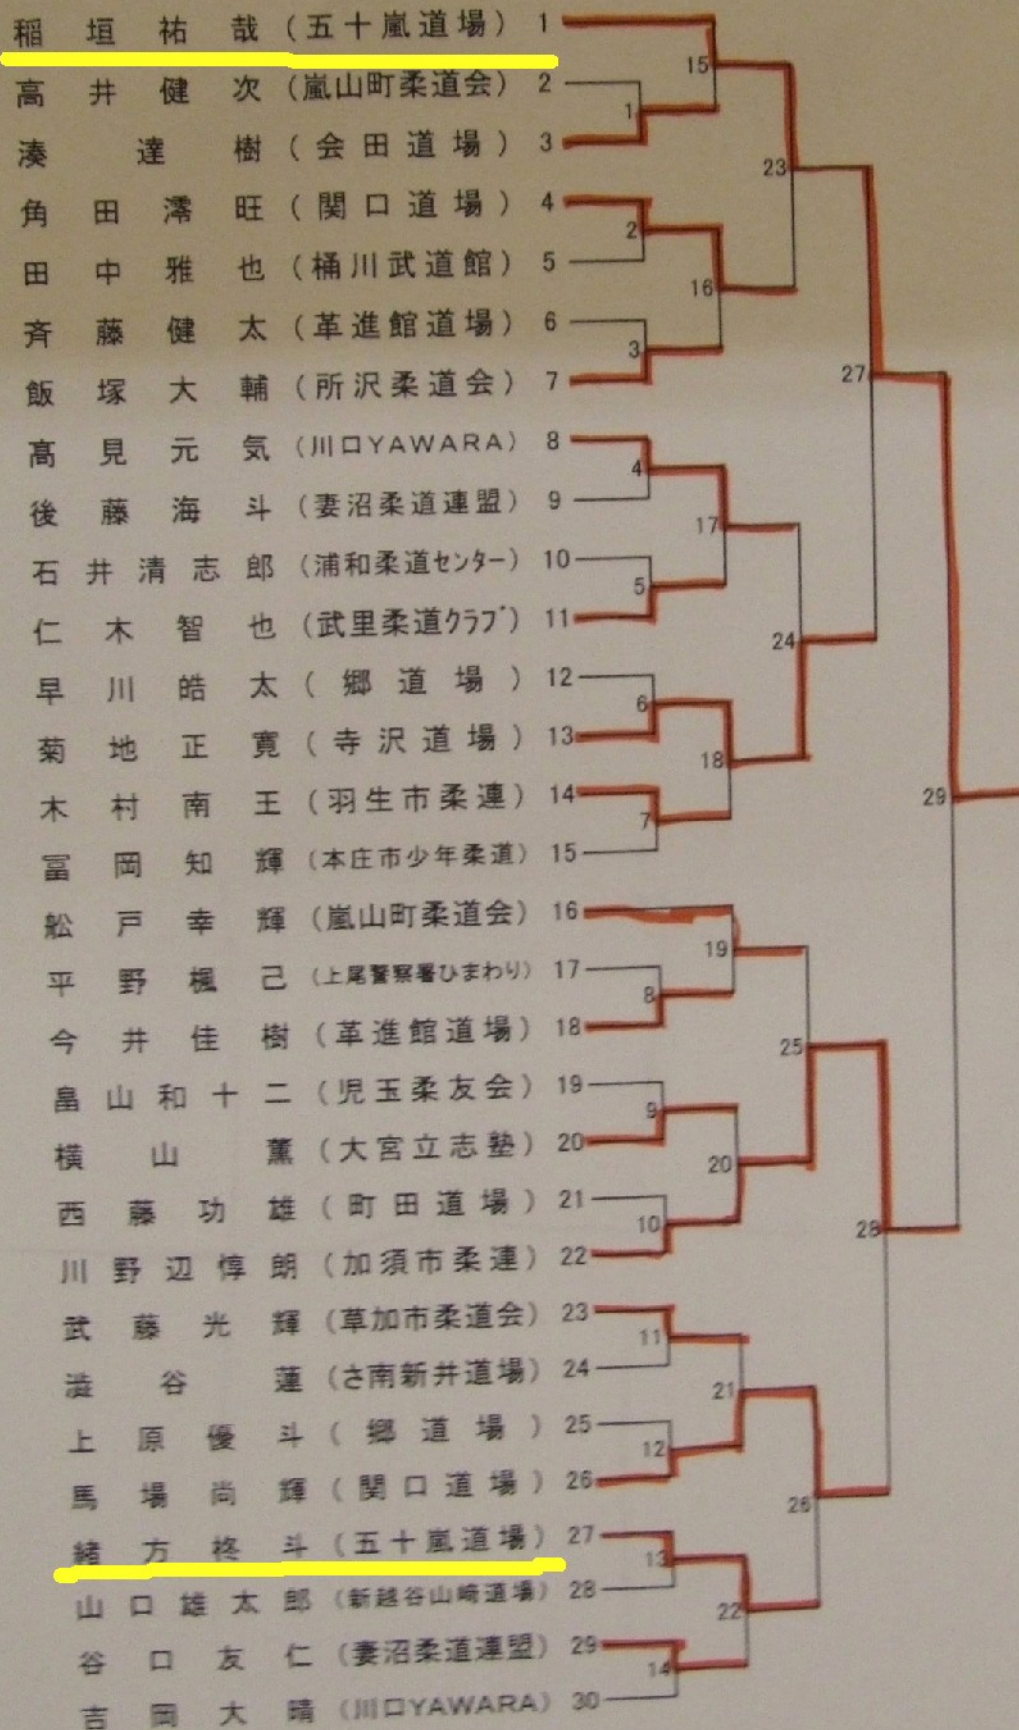 稲垣祐哉(五十嵐道場) 1
高井健次(嵐山町柔道会) 2
湊達樹(会田道場) 3
角田澪旺(関口道場) 4
田中雅也(桶川武道館) 5
斉藤健太(革進館道場) 6
飯塚大輔(所沢柔道会) 7
髙見元気(川口YAWARA) 8
後藤海斗(妻沼柔道連盟) 9
石井清志郎(浦和柔道センター) 10
仁木智也(武里柔道クラブ) 11
早川皓太(郷道場) 12
菊地正寛(寺沢道場) 13
木村南王(羽生市柔連) 14
冨岡知輝(本庄市少年柔道) 15
舩戸幸輝(嵐山町柔道会) 16
平野楓己(上尾警察署ひまわり) 17
今井佳樹(革進館道場) 18
畠山和十二(児玉柔友会) 19
横山薫(大宮立志塾) 20
西藤功雄(町田道場) 21
川野辺惇朗(加須市柔連) 22
武藤光輝(草加市柔道会) 23
澁谷蓮(さ南新井道場) 24
上原優斗(郷道場) 25
馬場尚輝(関口道場) 26
緒方柊斗(五十嵐道場) 27
山口雄太郎(新越谷山崎道場) 28
谷口友仁(妻沼柔道連盟) 29
吉岡大晴(川口YAWARA) 30
1
2
3
4
5
6
7
8
9
10
11
12
13
14
15
16
17
18
19
20
21
22
23
24
25
26
27
28
29